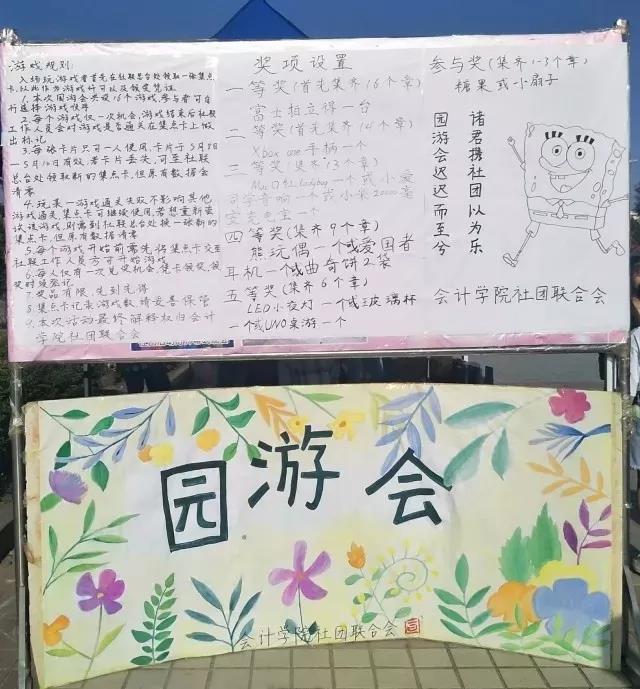 游戏规则:
入场玩游戏者首先在社联总台处领取一张集点
卡,以此作为游戏许可以及领奖凭证
1.本次园游会共设16个游戏,参与者可自
行选择游戏顺序
2.每个游戏仅一次机会,游戏结束后社联
工作人员会对游戏是否通关在集点卡上做
出标记
3.每张卡片只可一人使用,卡片于5月9日
—5月10日有效,若卡片丢失,可至社联
总台处领取新的集点卡,但原有数据会
清零
4.玩某一游戏通关失败不影响其他
游戏通关,集点卡可继续使用,若想重新尝
试该游戏,则需到社联总台处换一张新的
集点卡,但原有数据清零
5.每个游戏开始前需先将集点卡交至
社联工作人员方可开始游戏
6.每人仅有一次兑奖机会,凭卡领奖,领
奖时须登记
7.奖品有限,先到先得
8.集点卡记录游戏数,请妥善保管
9.本次活动最终解释权归会计
学院社团联合会
奖项设置
一等奖(首先集齐16个章)
富士拍立得一台
二等奖(首先集齐14个章)
Xbox one手柄一个
三等奖(集齐13个章)
Mac口红ladybug一个或小爱
同学音响一个或小米20000毫
安充电宝一个
四等奖(集齐9个章)
熊玩偶一个或爱国者
耳机一个或曲奇饼2袋
五等奖(集齐6个章)
LED小夜灯一个或玻璃杯
一个或UNO桌游一个
参与奖(集齐1-3个章)
糖果或小扇子
诸君携社团以为乐
园游会迟迟而至兮
会计学院社团联合会
园游会
会计学院社团联合会